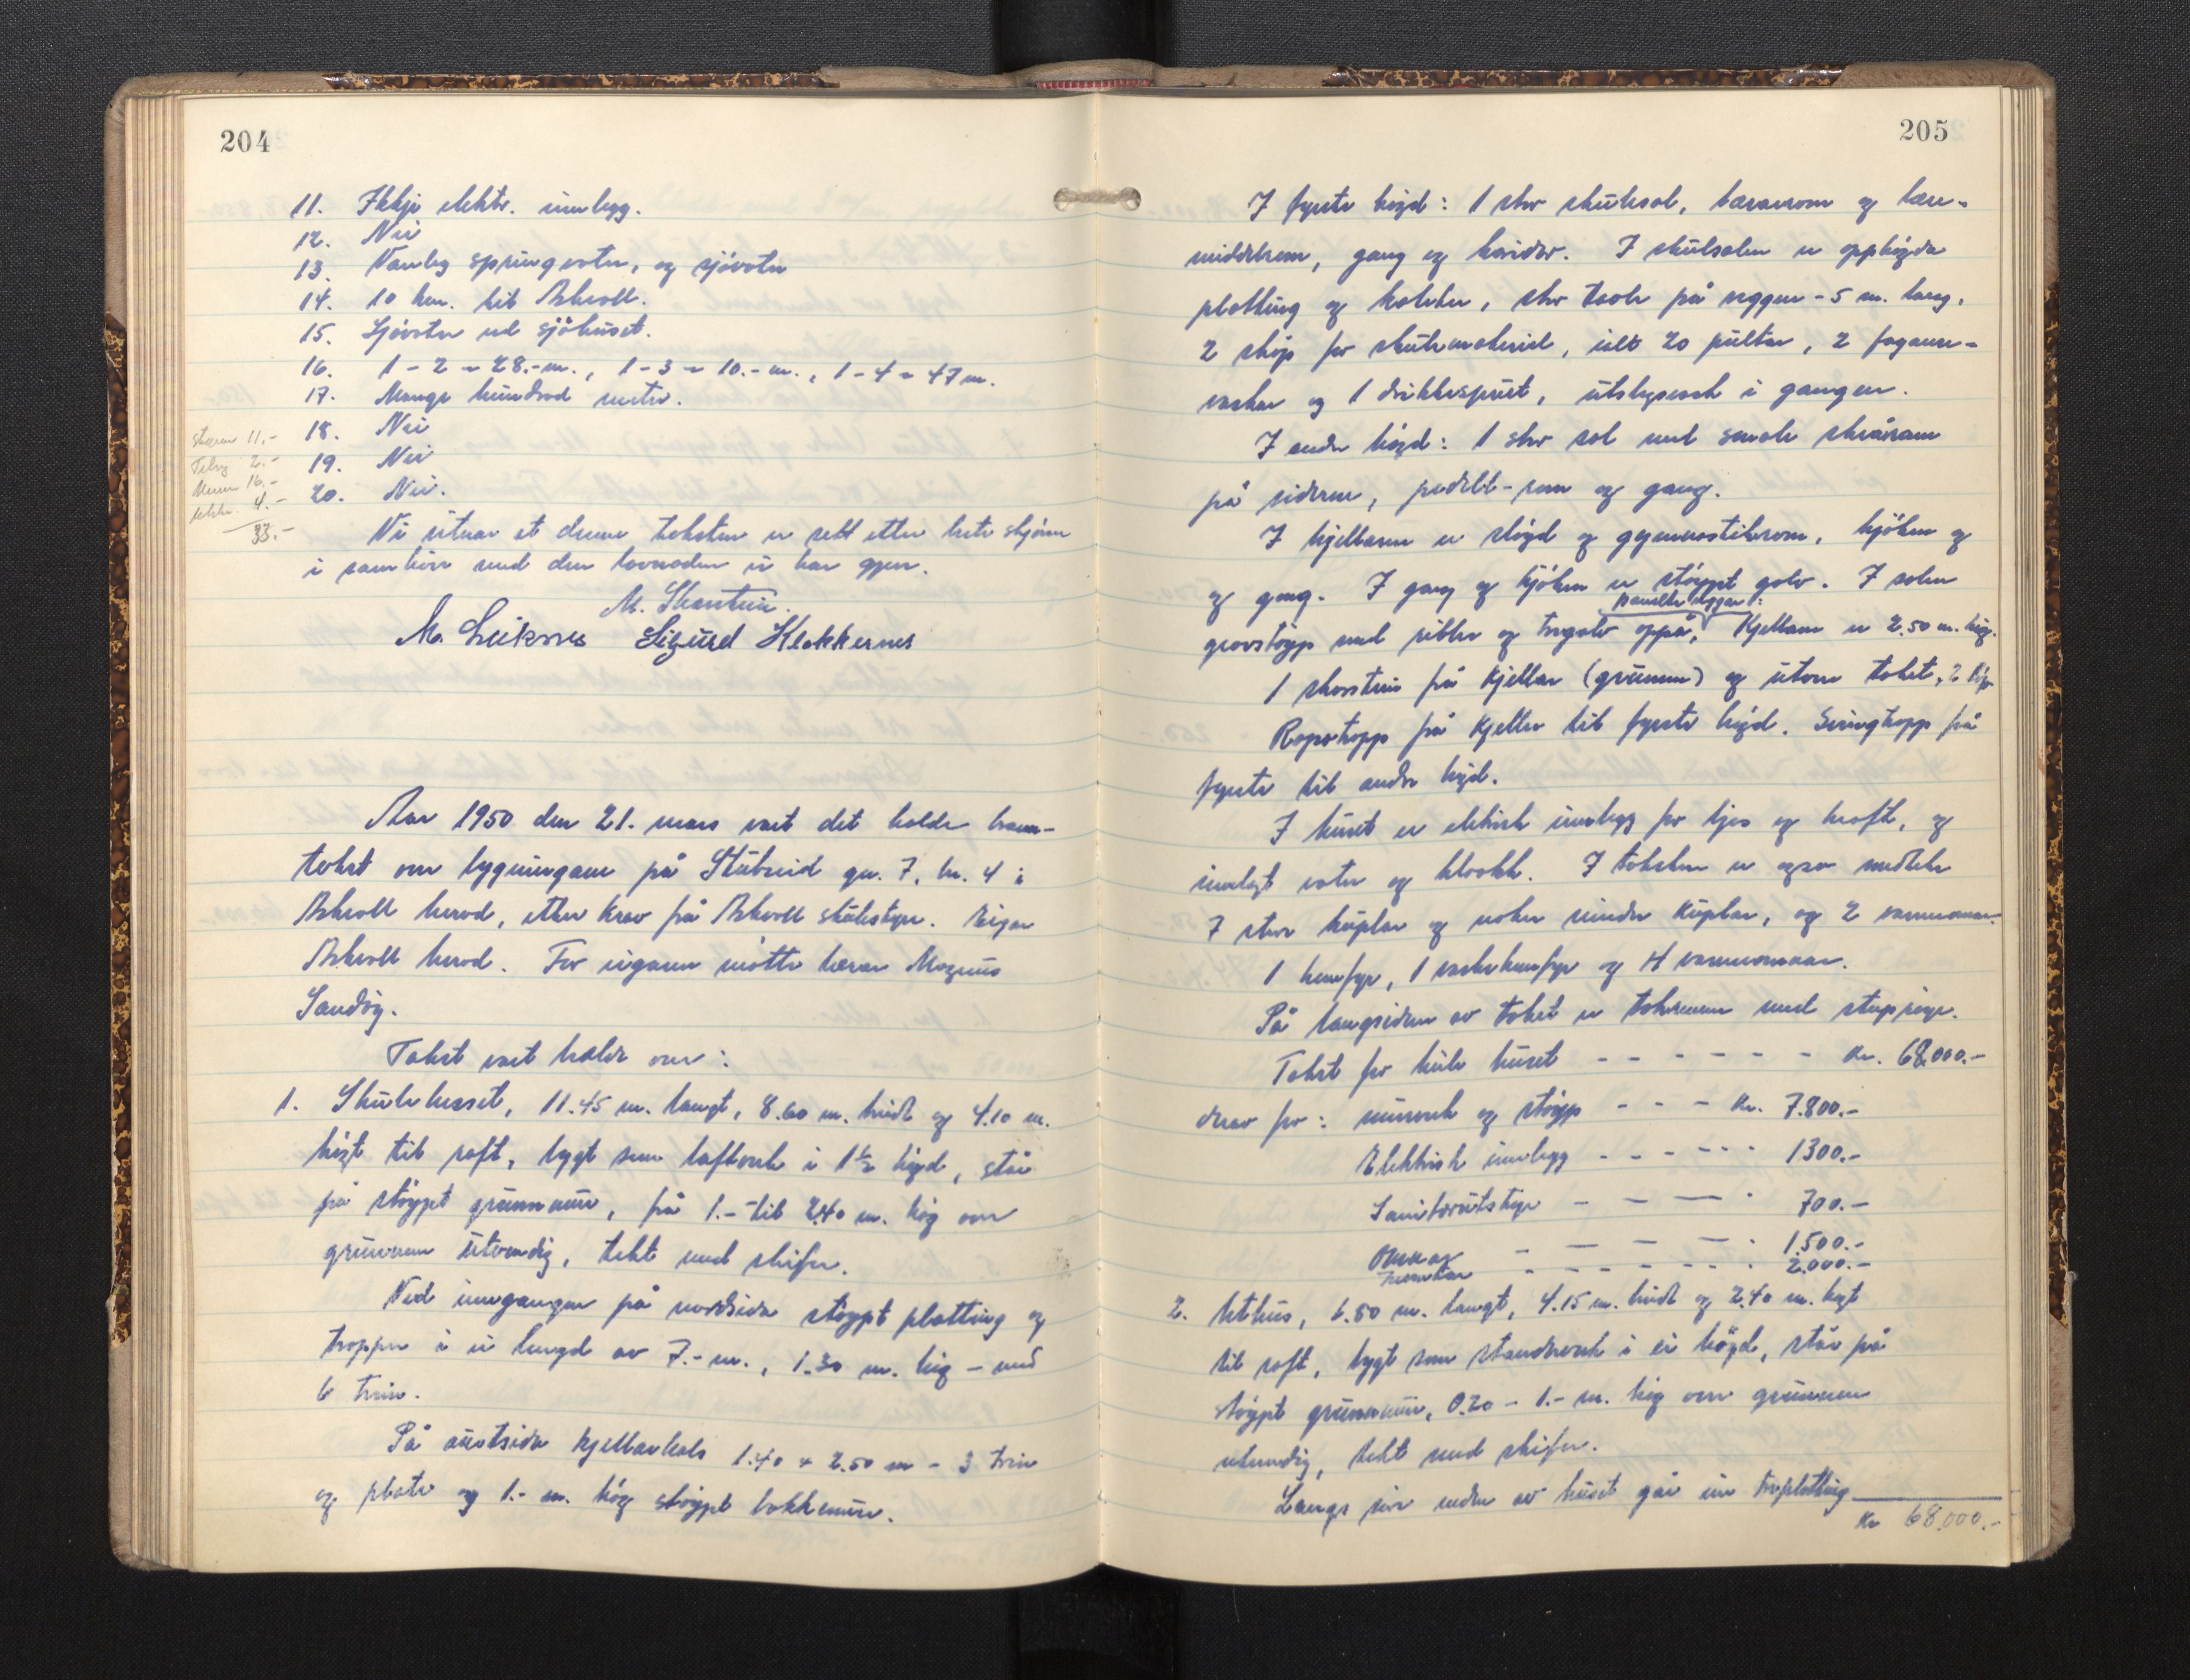 204
11. Ikkje elektr. innlegg.
12. Nei
13. Vanleg springvatn, og sjóvatn
14. 10 km. til Askvoll.
15. Sjóvatn ved sjóhuset.
16. 1 - 2 = 28.- m., 1 - 3 = 10.- m., 1 - 4 = 47 m.
17. Mange hundrad meter.
18. Nei
19. Nei
20. Nei.
11.-
2.-
16.-
4.-
33.-
Vi vitnar at denne taksten er sett etter beste skjónn
i samhóve med den lovnaden vi har gjeve.
M. Skarstein.
M. Leiknes Sigurd Klokkernes
Aar 1950 den 21. mars vart det halde brann-
takst over bygningane på Stubseid gn. 7, bn. 4 i
Askvoll herad, etter krav frå Askvoll skulestyre. Eigar
Askvoll herad. For eigaren mótte lærar Magnus
Sandóy.
Takst vart halde over:
1. Skulehuset, 11.45 m. langt, 8.60 m. breidt og 4.10 m.
hógt til raft, bygt som laftverk i 1½ hógd, står
på stóypt grunnmur, frå 1.- til 2.40 m. hóg over
grunnen utvendig, tekt med skifer.
Ved inngangen på nordsida stóypt platting og
trapper i ei lengd av 7.- m., 1.30 m. hóg - med
6 trin.
På austsida kjellarhals 1.40 x 2.50 m - 3 trin
og plate og 1.- m. hóg stóypt bakkemur.
205
I fyrste hógd: 1 stor skulesal, lærarrom og lære-
middelrom, gang og koridor. I skulesalen er opphógda
platting og kateter, stor tavle på veggen - 5 m. lang,
2 skåp for skulemateriel, ialt 20 pultar, 2 fagance-
vaskar og 1 drikkesprut, utslagsvask i gangen.
I andre hógd: 1 stor sal med smale skråram
på sidene, pedell-rom og gang.
I kjellaren er slóyd og gymnastikkrom, kjóken og
og gang. I gang og kjóken er stóypt golv. I salen
panelte veggar.
grovstóyp med ribber og tregolv oppå, Kjellaren er 2.50 m. hóg.
1 skorstein frå kjellar (grunnen) og utover taket, 2 lóp
Repostrapp frå kjeller til fyrste hógd. Svingtrapp frå
fyrste til andre hógd.
I huset er elektrisk innlegg for ljos og kraft, og
innlagt vatn og kloakk. I taksten er ogso medteke
7 store kuplar og nokre mindre kuplar, og 2 varmeomnar.
1 komfyr, 1 vaskekomfyr og 4 varmeomnar.
På langsidene av taket er takrenner med stuprøyr.
Takst for heile huset - - - - - - Kr. 68.000.-
derav for: murverk og stóyp - - - Kr. 7.800.-
Elektrisk innlegg - - - - - - 1300.-
Sanitærutstyr - - - - 700.-
Omnar - - - - - 1.500.-
- - - - - - - 2.000.-
2. Uthus, 6.80 m. langt, 4.15 m. breidt og 2.40 m. hógt
til raft, bygt som standverk i ei hógd, står på
stóypt grunnmur, 0.20 - 1.- m. hóg over grunnen
utvendig, tekt med skifer.
Langs eine enden av huset går ein treplatting
Kr 68.000.-